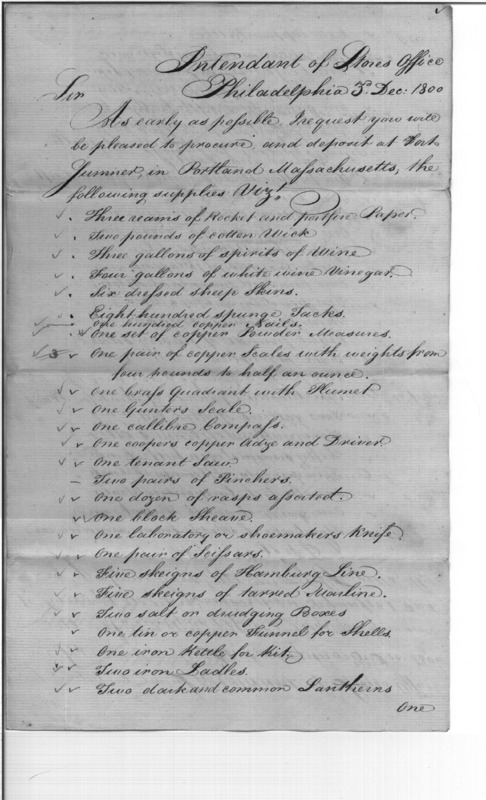 Intendant of Stores Office
Philadelphia 3d. Dec. 1800
Sir
As early as possible, I request you will
be pleased to procure, and deposit at Fort
Sumner, in Portland Massachusetts, the
following supplies Vizt.
Three reams of Rocket and portfire Paper.
Two pounds of cotten Wick
Three gallons of spirits of Wine
Four gallons of white wine Vinegar.
Six dressed sheep Skins.
Eight hundred spunge Tacks.
One hundred copper Nails.
One set of copper Powder Measures.
One pair of copper Scales with weights from
four pounds to half an ounce.
One brass Quadrant with Plumet
One Gunters Scale.
One callibre Compass.
One coopers copper Adze and Driver.
One tenant Saw.
Two pairs of Pinchers.
One dozen of rasps assorted.
One block Sheave.
One laboratory or shoemakers Knife.
One pair of Scissars.
Five skeigns of Hamburg Line.
Five skeigns of tarred Marline.
Two salt or drudging Boxes
One tin or copper Funnel for Shells.
One iron Kettle for Kitt
Two iron Ladles.
Two dark and common Lantherns
One